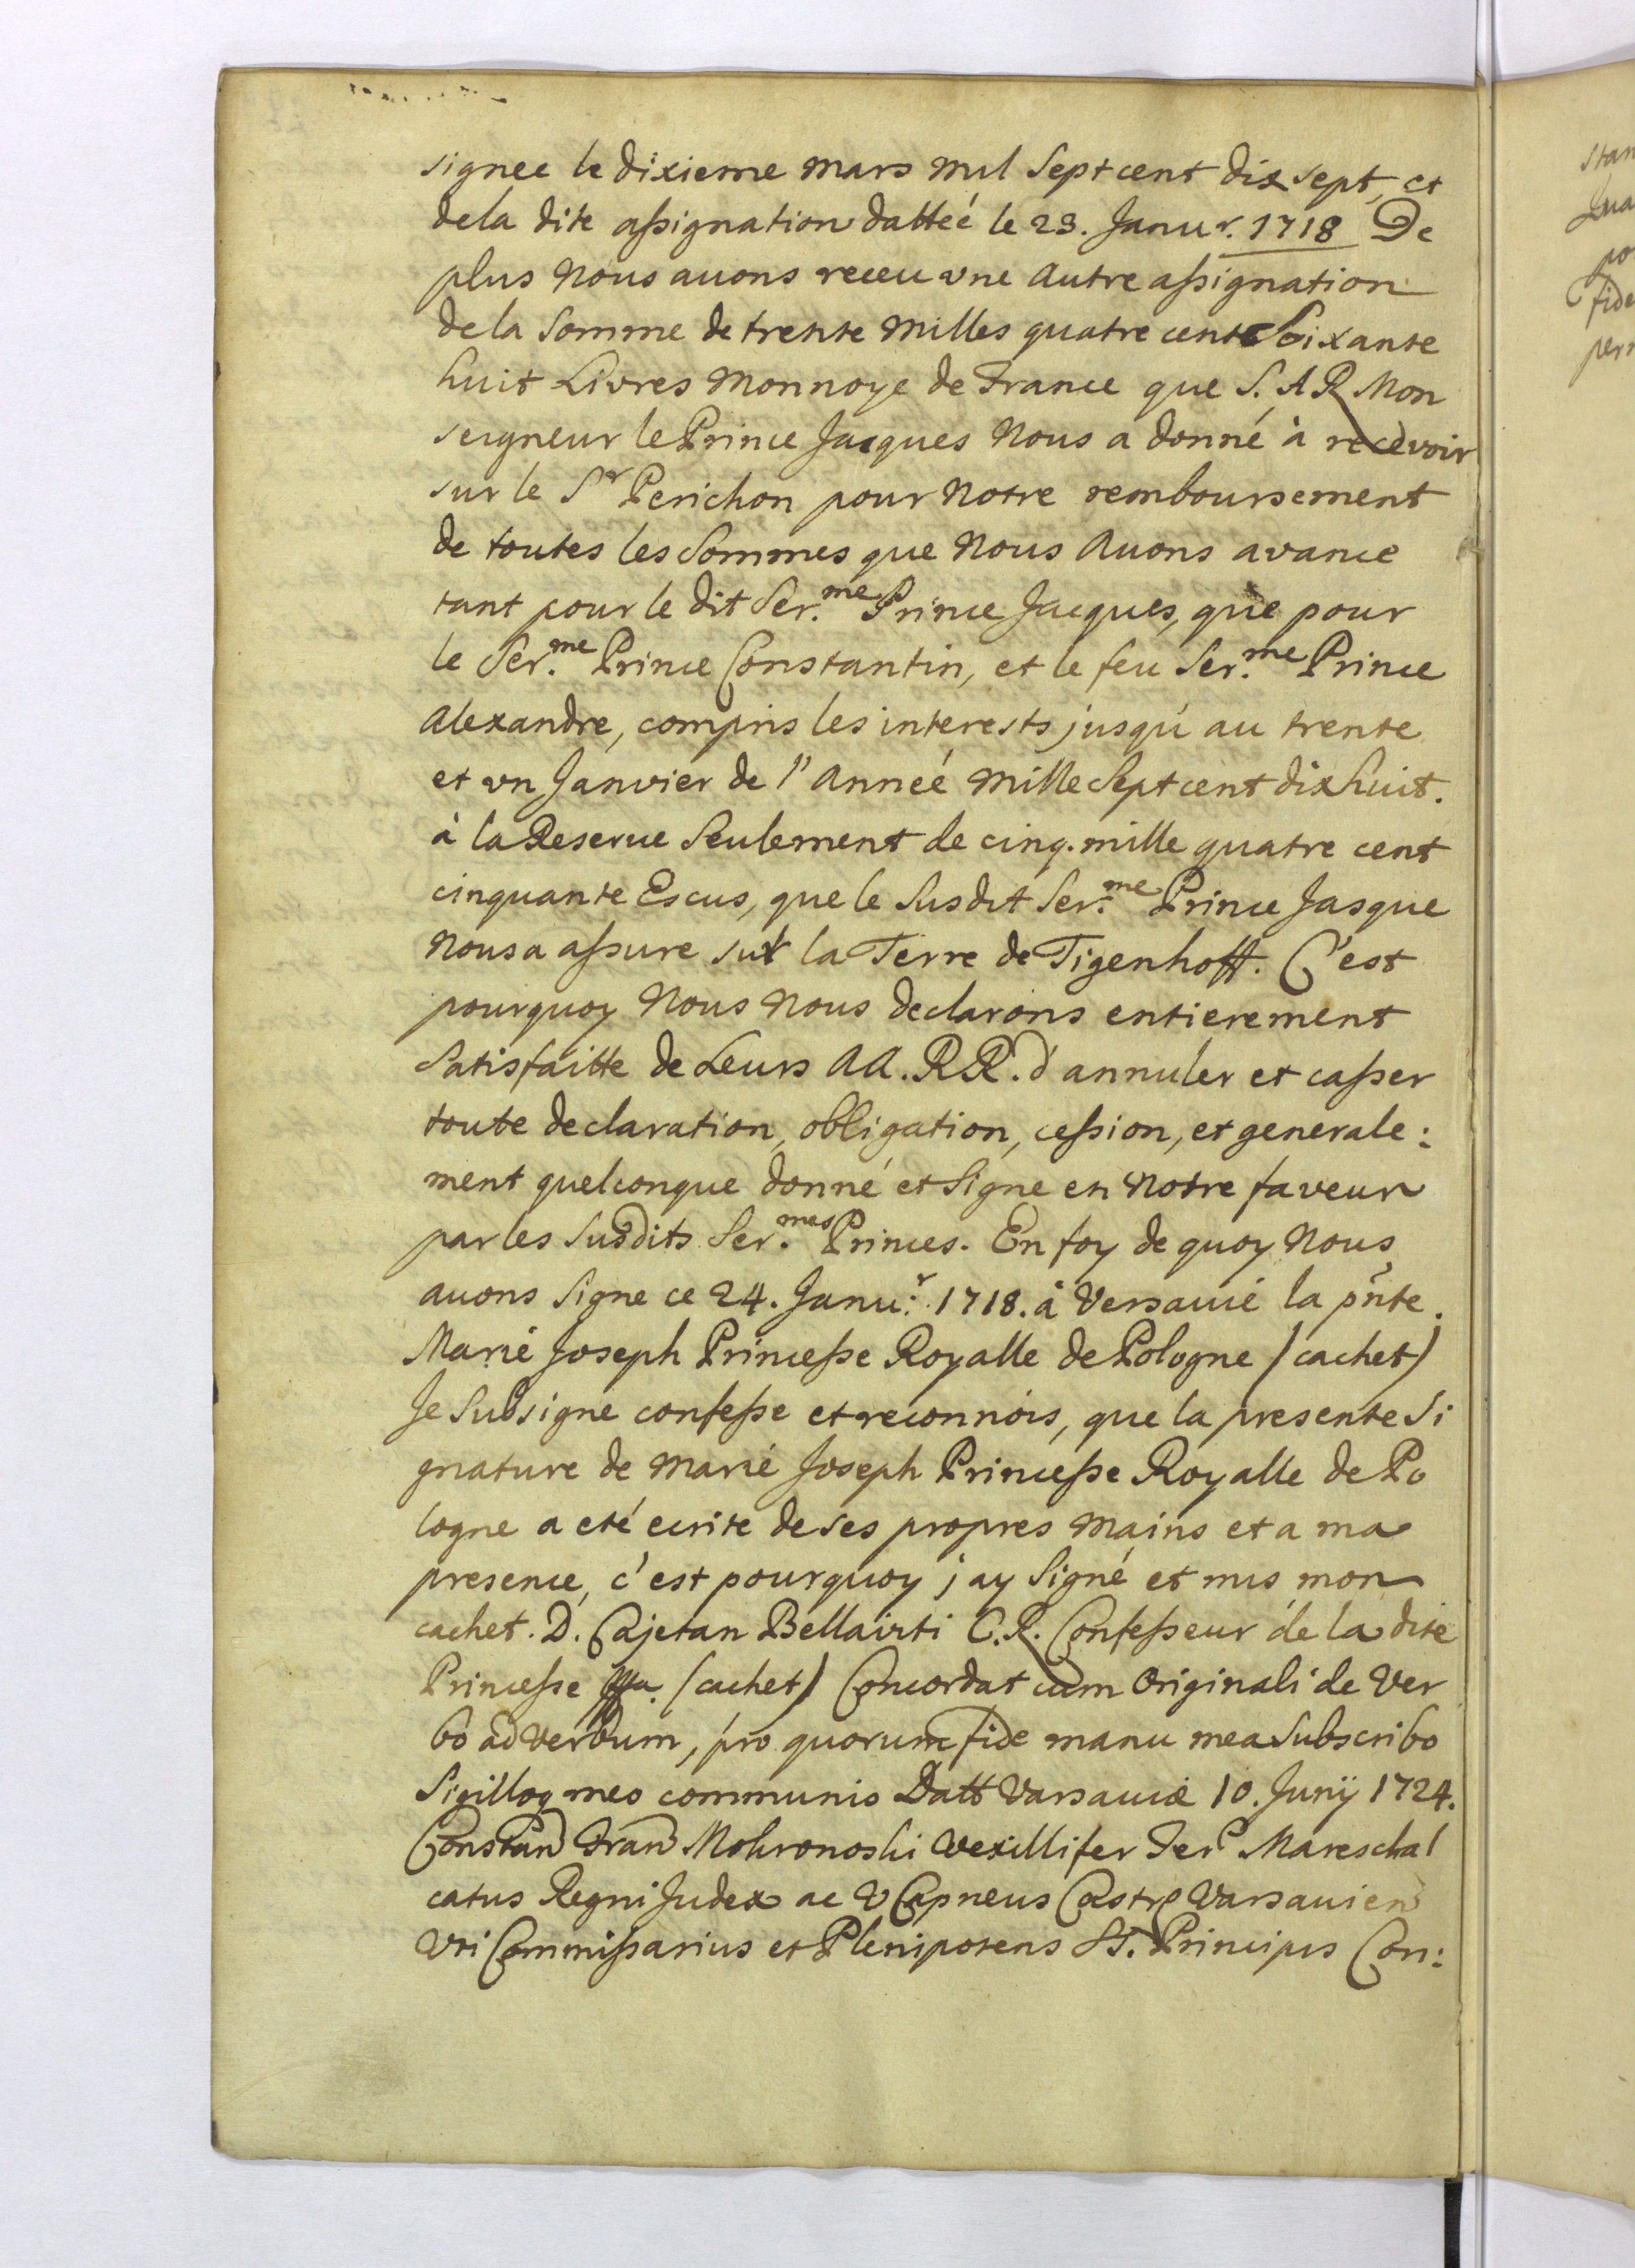 signee le dixieme mars mil Sept cent dix sept, et
dela dite assignation dattéé le 23. Janur. 1718 De
plus Nous auons receu vne autre assignation
dela Somme de trente milles quatre cent Soixante
huit Livres Monnoye de France que S. A R Mon
seigneur le Prince Jacques Nous a donné à recevoir
sur le Sr Perichon pour Notre remboursement
de toutes les Sommes que Nous Auons avance
tant pour le dit Ser.me Prince Jacques, que pour
le Ser.me Prince Constantin, et le feu Ser.me Prince
Alexandre, compris les interests jusqu'au trente
et vn Janvier de l'Anneé Mille Sept cent dixhuit.
à la Reserue Seulement de cinq. mille quatre cent
cinquante Escus, que le Susdit Ser.me Prince Jasque
Nous a assure sur la Terre de Tigenhoff. C'est
pourquoy Nous Nous declarons entierement
Satisfaitte de Leurs AA. RR. d'annuler et casser
toute declaration, obligation, cession, et generale:
ment quelconque donné et Signe en Notre faveur
par les Susdits Ser.mes Princes. En foy de quoy Nous
auons Signe ce 24. Janu:r 1718. à Versauié la pñte.
Marié Joseph Princesse Royalle de Pologne (cachet)
Je Subsigne confesse et reconnois, que la presente Si
gnature de Marié Joseph Princesse Royalle de Po
logne a eté ecrite de ses propres Mains et a ma
presence, c'est pourquoy j'ay Signé et mis mon
cachet. D. Cajetan Bellairti C. R. Confesseur de la dite
Princesse (cachet) Concordat cum Originali de Ver
bo ad Verbum, pro quorum fide manu mea Subscribo
Sigilloq meo communio Datt Varsauiæ 10. Junÿ 1724.
Constan Fran Mokronoski Vexillifer Ter Mareschal
catus Regni Judex ac V Capneus Castr Varsauien
Vti Commissarius et Plenipotens SS. Principis Con: